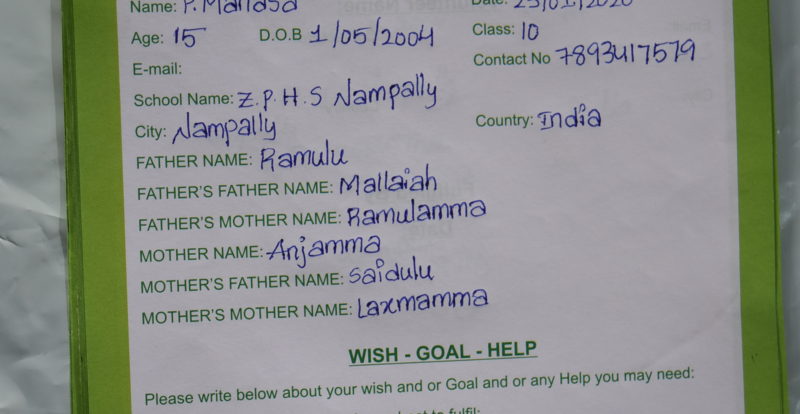 Name: P. Manasa Date: 25/01/2020
Age: 15 D.O.B 1/05/2004 Class: 10
E-mail: Contact No 7893417579
School Name: Z.P.H.S Nampally
City: Nampally Country: India
FATHER NAME: Ramulu
FATHER'S FATHER NAME: Mallaiah
FATHER'S MOTHER NAME: Ramulamma
MOTHER NAME: Anjamma
MOTHER'S FATHER NAME: Saidulu
MOTHER'S MOTHER NAME: Laxmamma
WISH - GOAL - HELP
Please write below about your wish and or Goal and or any Help you may need:
to fulfil: